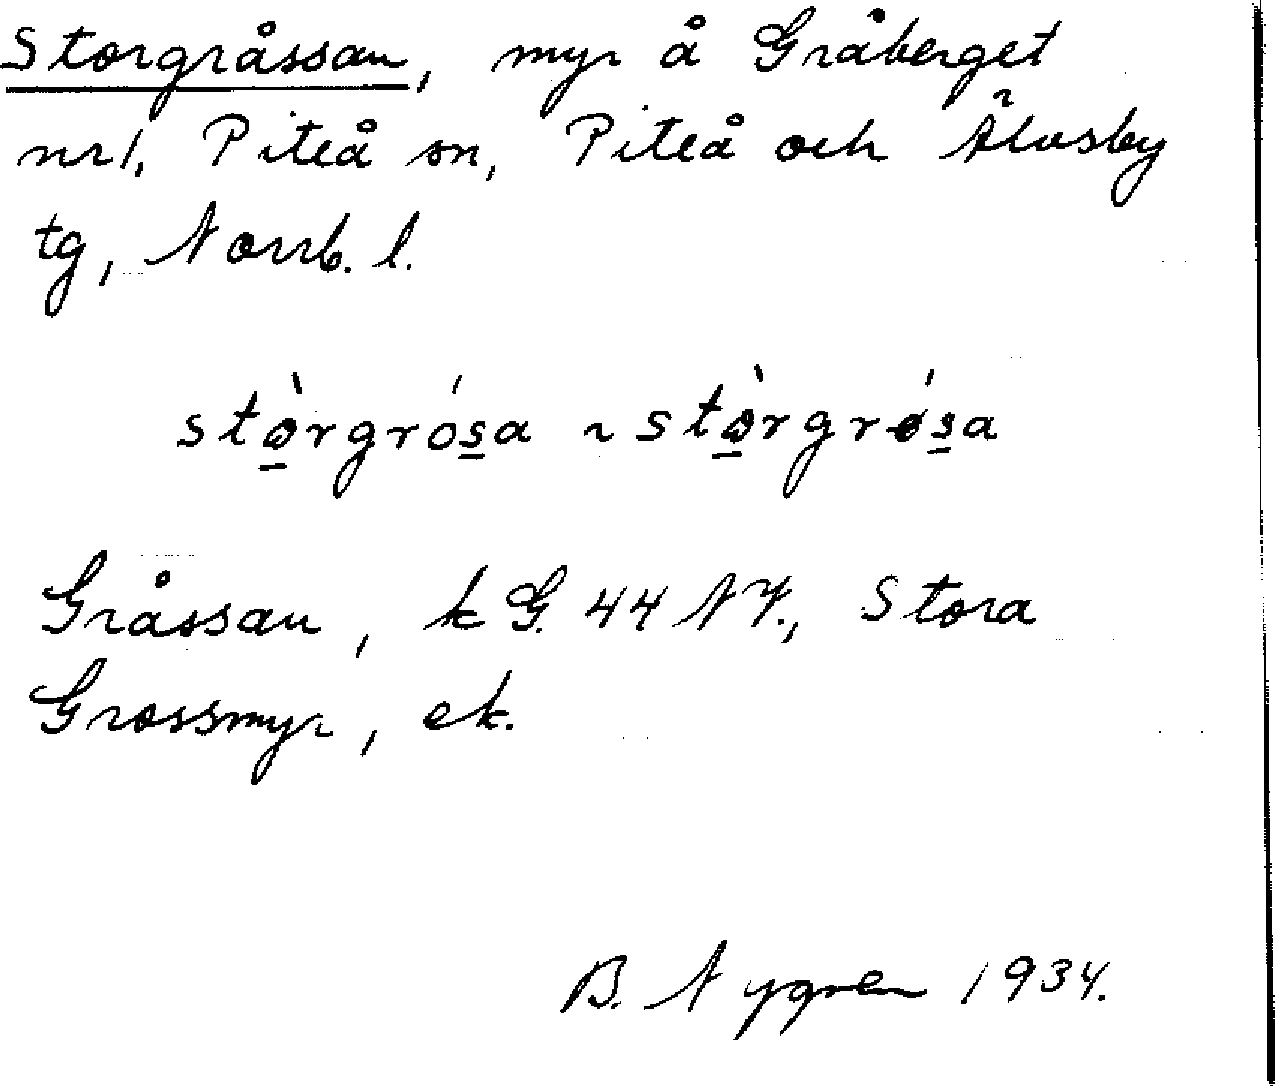 Storgråssan, myr å Gråberget
nr1, Piteå sn, Piteå och Älvsby
tg, Norrb. l.
stòrgrósa ~ stòrgrósa
Gråssan, k G. 44 NV., Stora
Grossmyr, ek.
B. Nygren 1934.